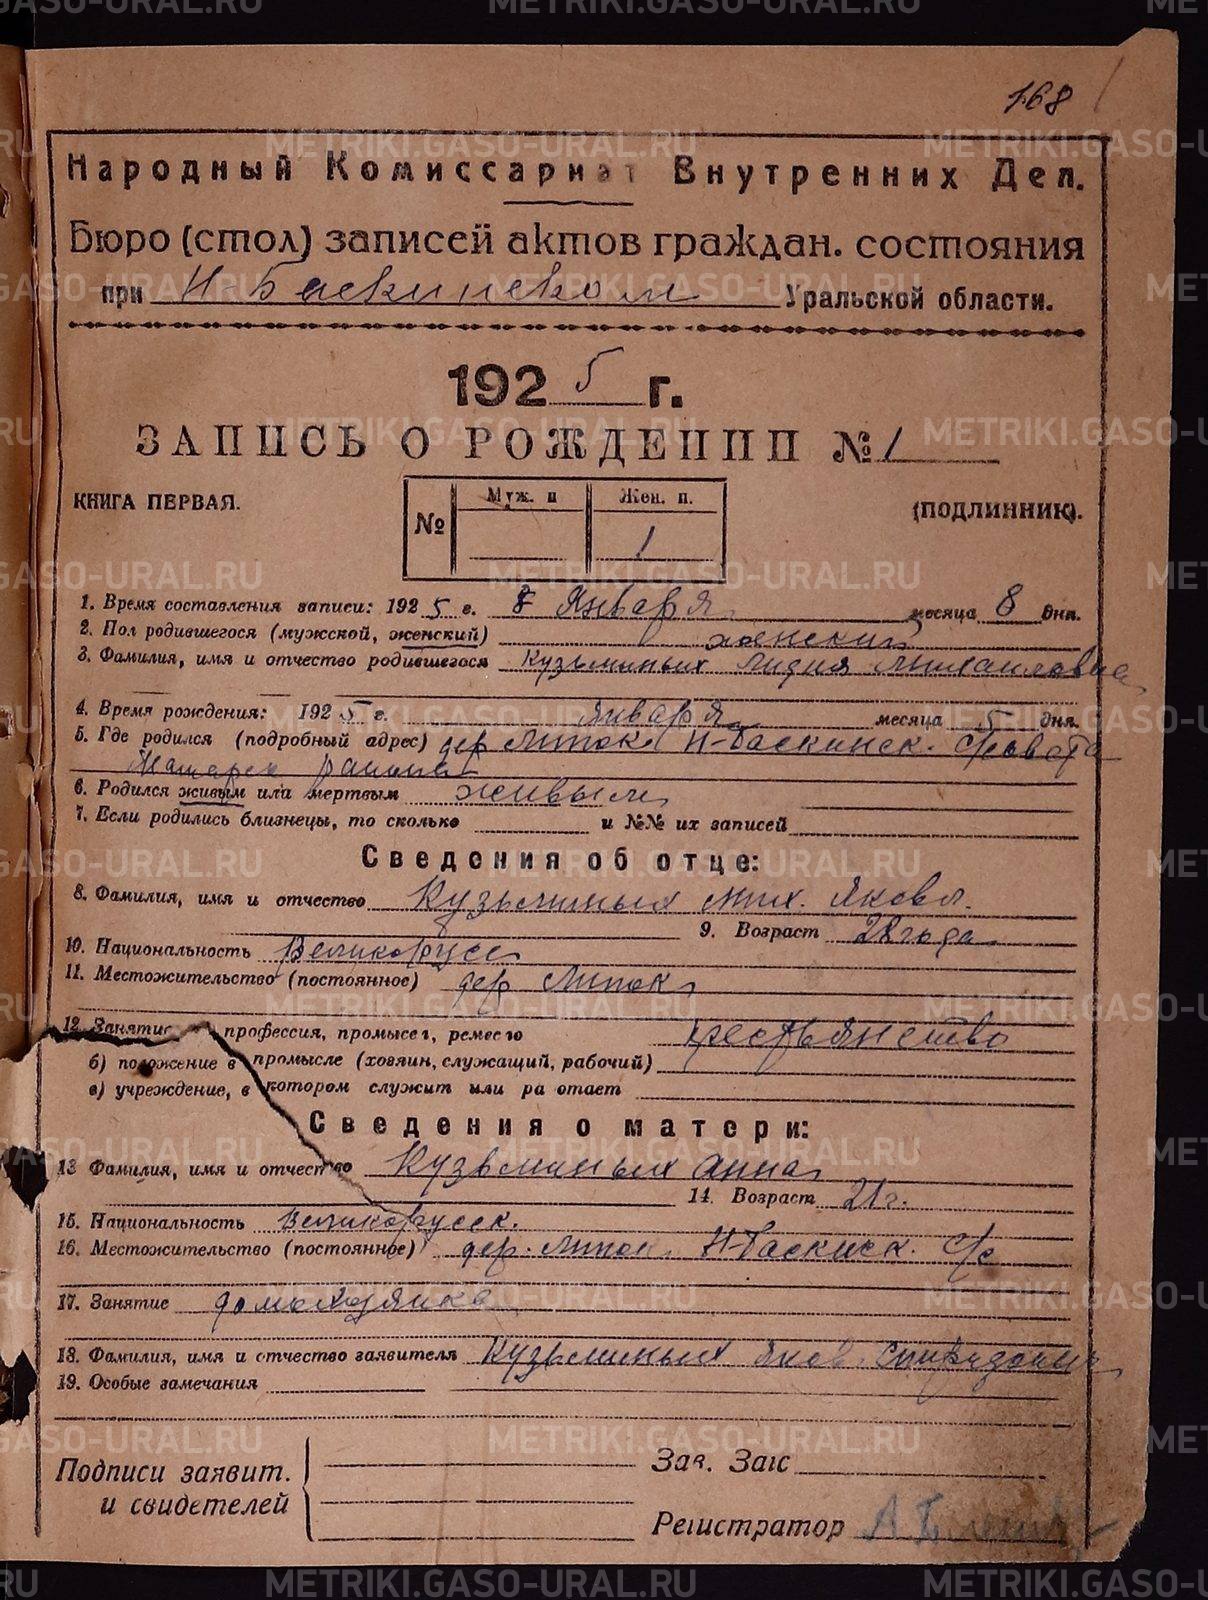 168
Народный Комиссариат Внутренних Дел.
Бюро (стол) записей актов граждан. состояния
при Н-Баскинском Уральской области.
1925 г.
ЗАПИСЬ О РОЖДЕНИИ № 1
КНИГА ПЕРВАЯ.
(ПОДЛИННИК).
№ Муж. п Жен. п.
1
1. Время составления записи: 1925 г. 8 Января месяца 8 дня.
2. Пол родившегося (мужской, женский) женский
3. Фамилия, имя и отчество родившегося Кузьминых Лидия Михаиловна
4. Время рождения: 1925 г. января месяца 5 дня.
5. Где родился (подробный адрес) дер Липок Н-Баскинск. С/совета
района
6. Родился живым или мертвым живым
7. Если родились близнецы, то сколько и №№ их записей
Сведения об отце:
8. Фамилия, имя и отчество Кузьминых Мих. Яковл.
9. Возраст 22 года
10. Национальность Великорусс
11. Местожительство (постоянное) дер Липок
12. Занятие профессия, промысел, ремесло крестьянство
б) положение в промысле (хозяин, служащий, рабочий)
в) учреждение, в котором служит или ра отает
Сведения о матери:
13 Фамилия, имя и отчество Кузьминых Анна
14. Возраст 21 г.
15. Национальность Великорусск.
16. Местожительство (постоянное) дер. Липок Н-Баскинск. с/с
17. Занятие домохозяйка
18. Фамилия, имя и отчество заявителя Кузьминых Яков Спиридоныч
19. Особые замечания
Подписи заявит.
и свидетелей
Зав. Загс
Регистратор
METRIKI.GASO-URAL.RU